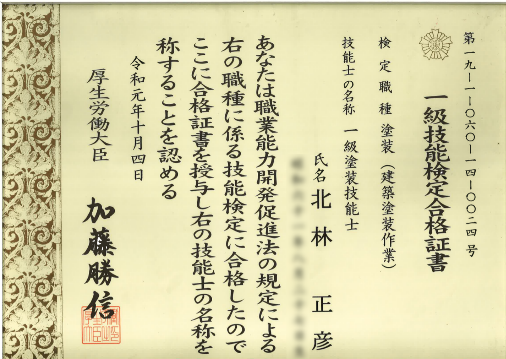 第一九―一―〇六〇―一四―〇〇二四号
一級技能検定合格証書
検定職種 塗装(建築塗装作業)
技能士の名称 一級塗装技能士
氏名 北林 正彦
あなたは職業能力開発促進法の規定による
右の職種に係る技能検定に合格したので
ここに合格証書を授与し右の技能士の名称を
称することを認める
令和元年十月四日
厚生労働大臣 加藤勝信